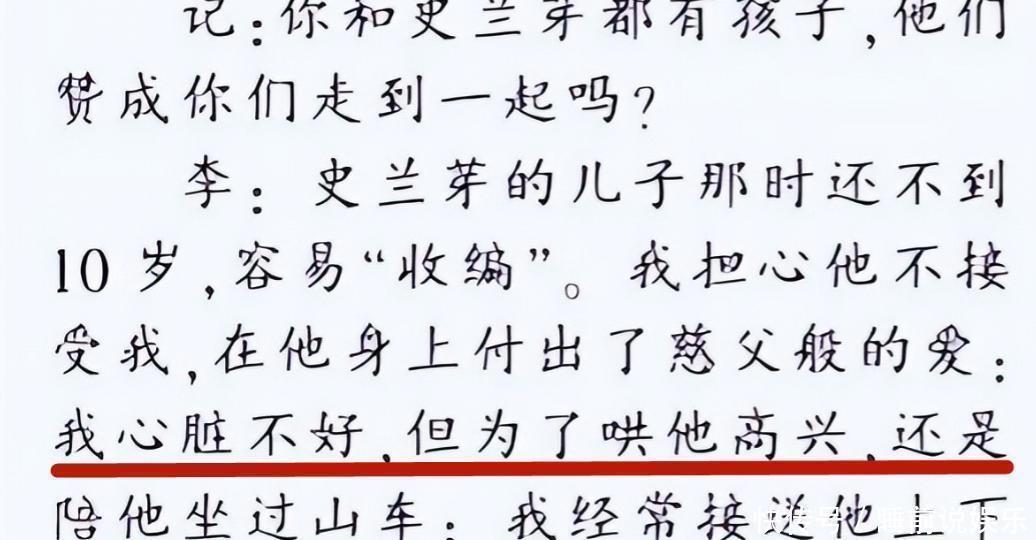 记：你和史兰芽都有孩子，他们
赞成你们走到一起吗？
李：史兰芽的儿子那时还不到
10岁，容易“收编”。我担心他不接
受我，在他身上付出了慈父般的爱：
我心脏不好，但为了哄他高兴，还是
陪他坐过山车；我经常接送他上下
快传号／睡前说娱乐